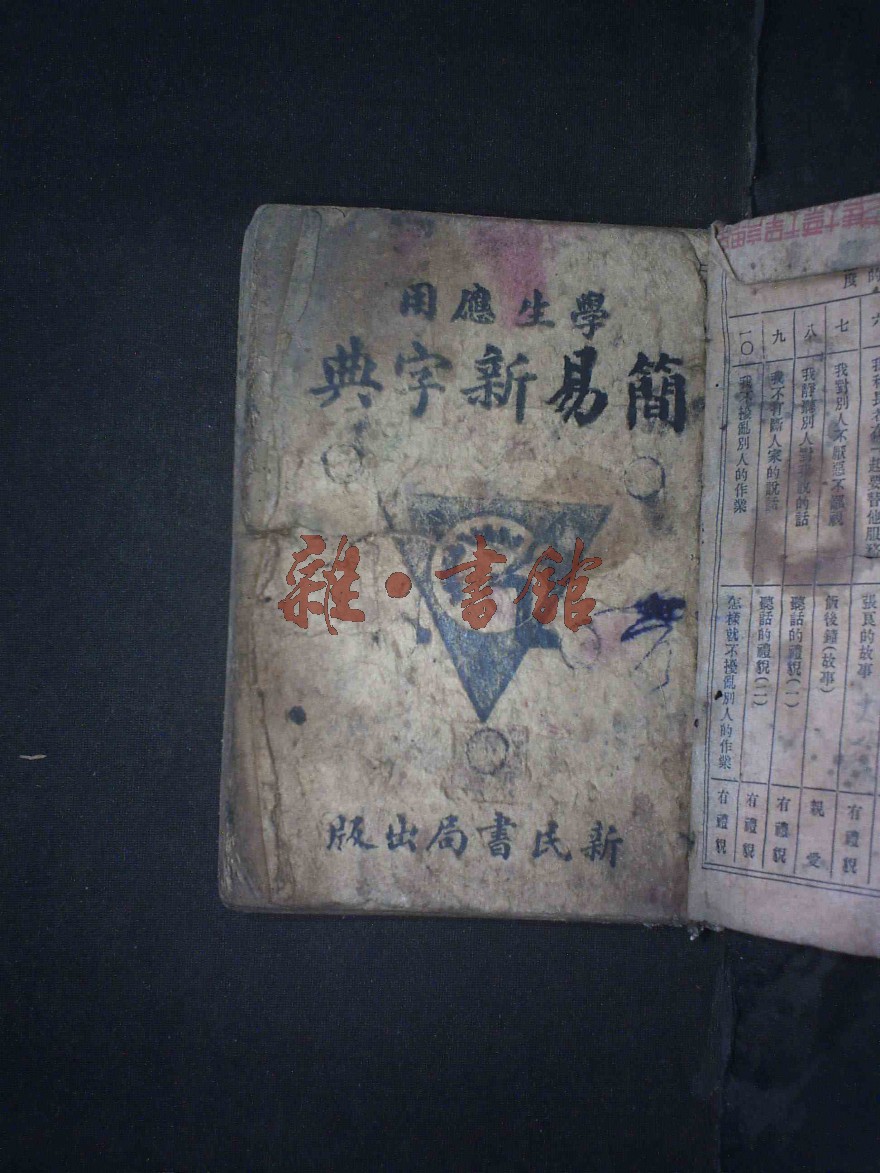 學生應用
簡易新字典
雜·書館
新民書局出版
六
七
八
九
一〇
我對別人不厭惡不輕視
我靜聽別人對我說的話
我不打斷人家的說話
我不擾亂別人的作業
張良的故事
飯後鐘(故事)
聽話的禮貌(一)
聽話的禮貌(二)
怎樣就不擾亂別人的作業
有禮貌
親愛
有禮貌
有禮貌
有禮貌